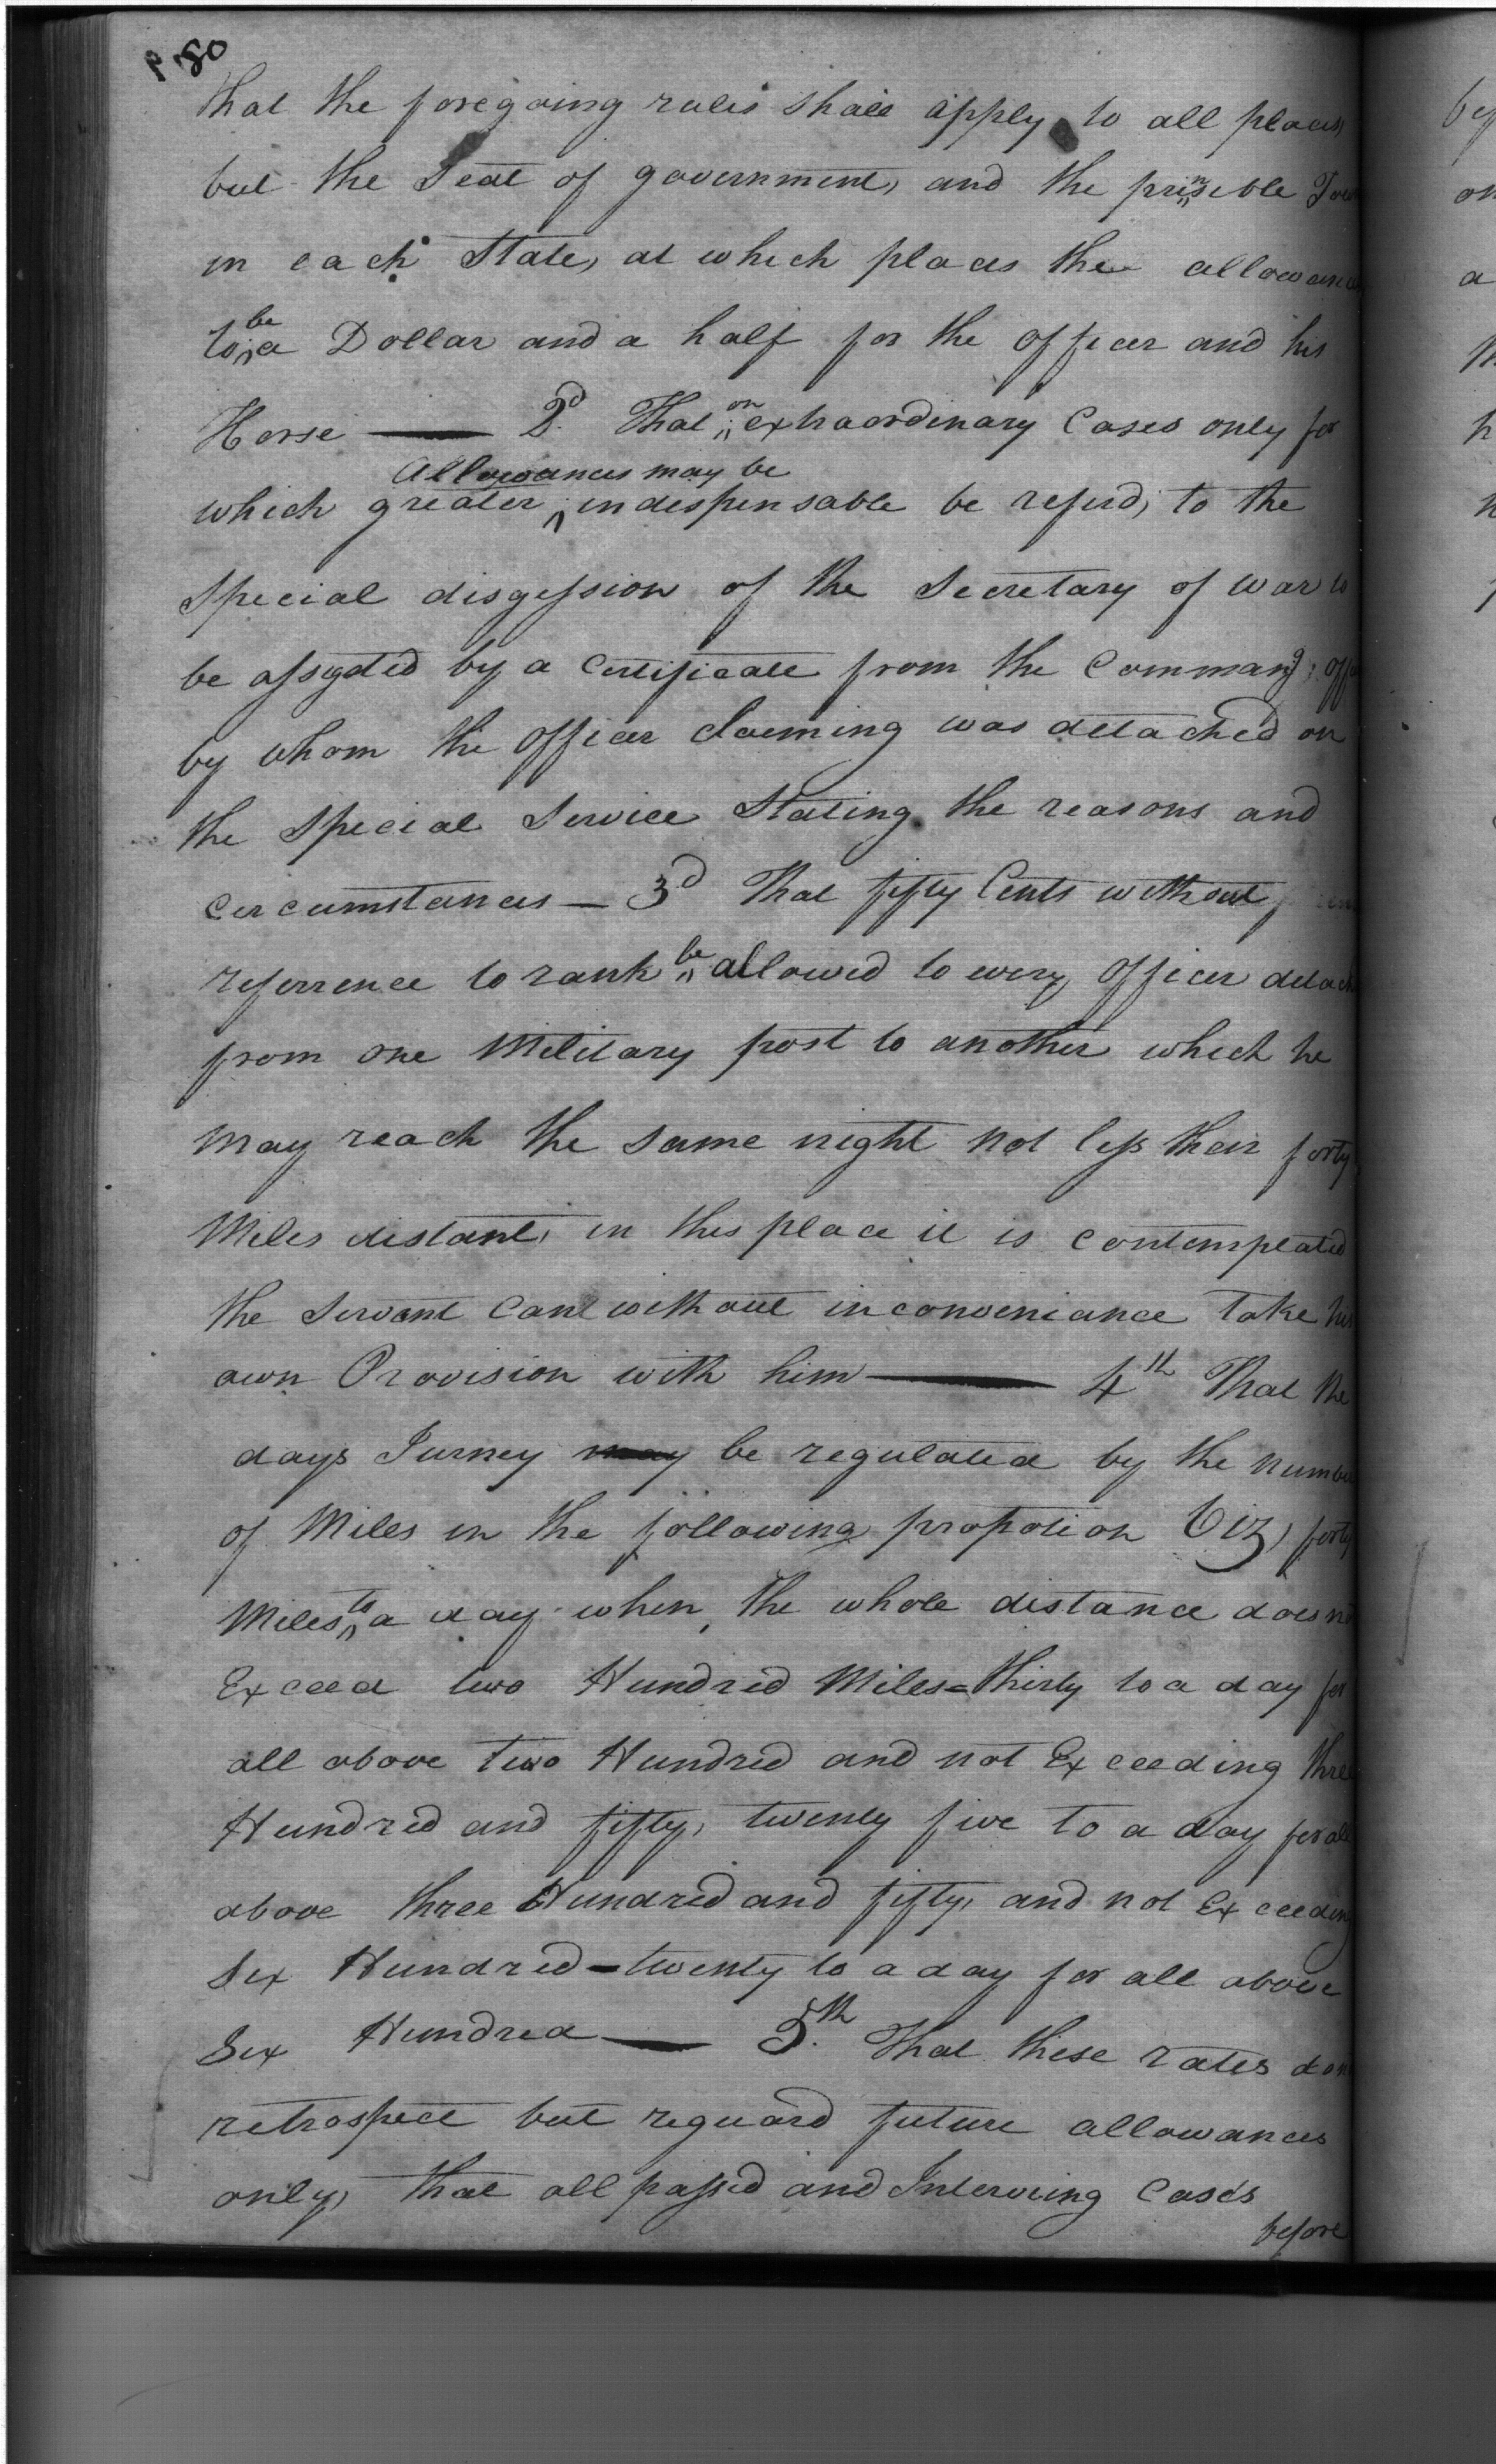 P. 80
that the foregoing rules shall apply to all places
but the Seat of government, and the prinseble Town
in each State, at which places the allowance
to be a Dollar and a half for the officer and his
Horse — 2d. That on extraordinary Cases only for
which greater Allowances may be indispensable be referd, to the
Special disgession of the Secretary of War to
be assysted by a Certificate from the Commang. off
by whom the officer claeming was detached on
the Special Service Stating the reasons and
circumstances — 3d That fifty Cents without
referrence to rank be allowed to every officer detach
from one Military post to another which he
may reach the same night not less then forty
Miles distant, in this place it is contemplated
the Servant Cane without inconveniance take his
own Provision with him — 4th That the
days Jurney may be regulated by the number
of Miles in the following propotion Viz, forty
Miles to a day when the whole distance does not
Exceed two Hundred Miles = thirty to a day for
all above two Hundred and not Exceeding three
Hundred and fifty, twenty five to a day for all
above three Hundred and fifty, and not Exceeding
Six Hundred = twenty to a day for all above
Six Hundred — 5th. That these rates do n
retrospect but reguard future allowances
only, that all passed and Interveing Cases
before